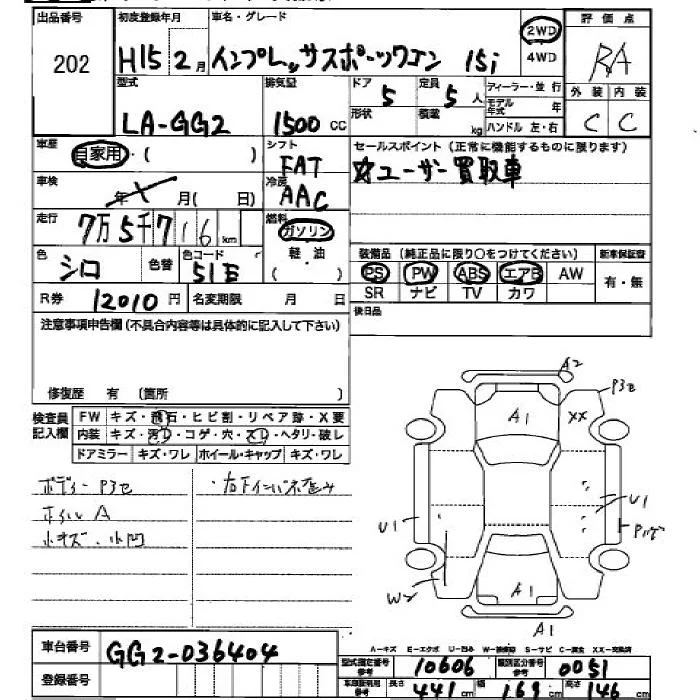 出品番号 初度登録年月 車名・グレード 2WD 評価点
202 H15 2月 インプレッサスポーツワゴン 15i 4WD RA
型式 排気量 ドア 定員 ディーラー・並行 外装 内装
LA-GG2 1500 CC 5 5人 モデル年式
形状 積載 kg ハンドル 左・右 C C
車歴 自家用・( ) シフト FAT セールスポイント(正常に機能するものに限ります)
車検 年 X 月( 日) 冷房 AAC ☆ユーザー買取車
走行 7万5千716km 燃料 ガソリン
色 シロ 色替 色コード 51E 軽油 ( )
装備品(純正品に限り○をつけてください) 新車保証書
PS PW ABS エアB AW 有・無
SR ナビ TV カワ
R券 12010円 名変期限 月 日 後日品
注意事項申告欄(不具合内容等は具体的に記入して下さい)
修復歴 有 (箇所 )
検査員記入欄 FW キズ・飛石・ヒビ割・リペア跡・X要
内装 キズ・汚レ・コゲ・穴・スレ・ヘタリ・破レ
ドアミラー キズ・ワレ ホイール・キャップ キズ・ワレ
ボディー P3セ
ホイル A
小キズ、小凹
A2
P3セ
A1
XX
U1
U1
W2
A1
A1
A-キズ E-エクボ U-凹み W-補修跡 S-サビ C-腐食 XX-交換済
車台番号 GG2-036404
型式指定番号 参考 10606 類別区分番号 参考 0051
登録番号
長さ 441cm 幅 169cm 高さ 146cm